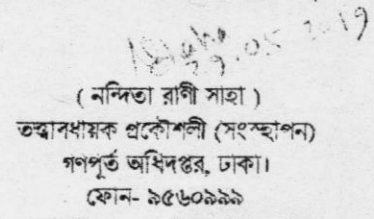 29.05.2019
( নন্দিতা রাণী সাহা )
তত্ত্বাবধায়ক প্রকৌশলী (সংস্হাপন)
গণপূর্ত অধিদপ্তর, ঢাকা।
ফোন- ৯৫৬০৯৯৯